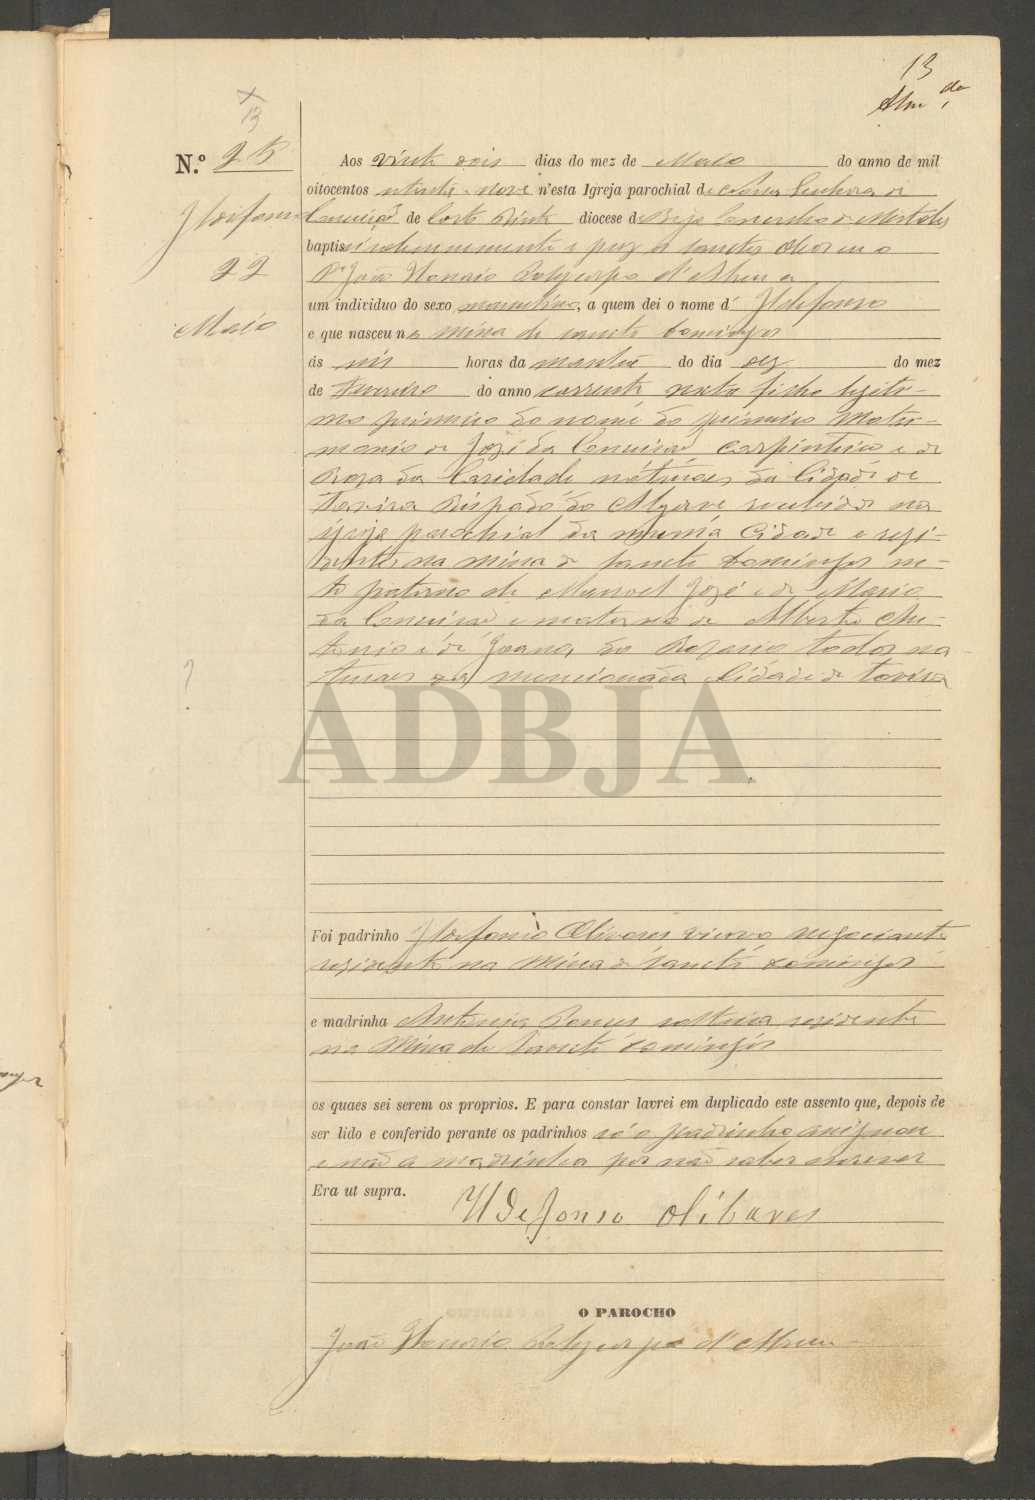 13
Alm.da
13
N.º 25
Ildefonso
22
Maio
Aos vinte dois dias do mez de Maio do anno de mil
oitocentos oitenta e nove n'esta Igreja parochial de Nossa Senhora da
Conceição de Corte Pinto diocese de Beja Concelho de Mertola
baptisei solemnemente e puz os sanctos oleos eu o
P.e João Honorio Polycarpo d'Abreu a
um individuo do sexo masculino, a quem dei o nome d' Ildefonso
e que nasceu na mina de sancto Domingos
ás seis horas da manhã do dia dez do mez
de Fevereiro do anno corrente neste filho legiti-
mo primeiro do nome do primeiro Matri-
monio de José da Conceição Carpinteiro e de
Roza da Caridade naturaes da Cidade de
Tavira Bispado do Algarve recebidos na
igreja parochial da mesma Cidade e rezi-
dentes na mina de sancto Domingos ne-
to paterno de Manoel José e de Maria
da Conceição e materno de Alberto An-
tonio e de Joana do Rozario todos na
turaes da mencionada Cidade de Tavira
ADBJA
Foi padrinho Ildefonso Olivares viuvo negociante
rezidente na Mina de Sancto Domingos
e madrinha Antonia Ponces solteira rezidente
na Mina de Sancto Domingos
os quaes sei serem os proprios. E para constar lavrei em duplicado este assento que, depois de
ser lido e conferido perante os padrinhos só o padrinho assignou
e não a madrinha por não saber escrever
Era ut supra.
Yldefonso Olibares
O PAROCHO
João Honorio Polycarpo d'Abreu